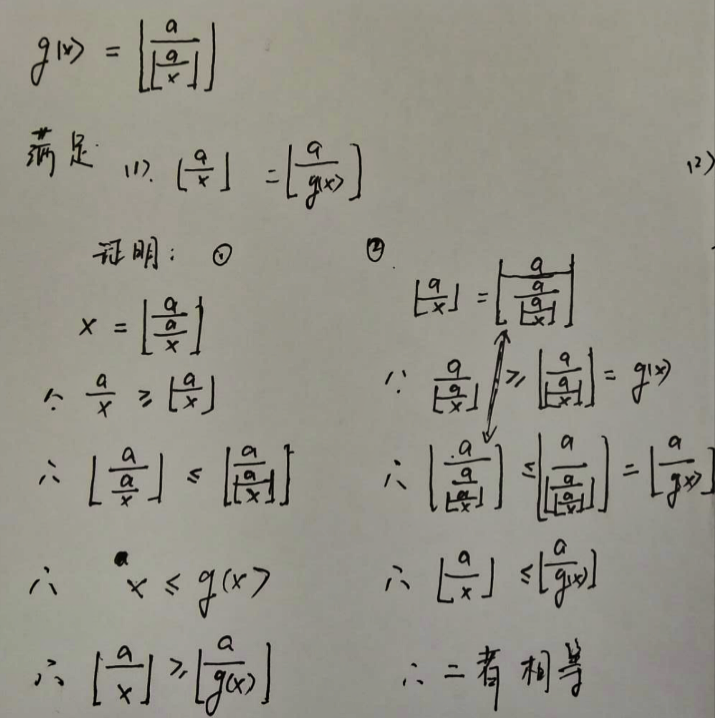 g(x) = ⌊a/⌊a/x⌋⌋
满足 (1). ⌊a/x⌋ = ⌊a/g(x)⌋ (2)
证明: ①
x = ⌊a/(a/x)⌋
∵ a/x ≥ ⌊a/x⌋
∴ ⌊a/(a/x)⌋ ≤ ⌊a/⌊a/x⌋⌋
∴ x ≤ g(x)
∴ ⌊a/x⌋ ≥ ⌊a/g(x)⌋
②.
⌊a/x⌋ = ⌊a/(a/⌊a/x⌋)⌋
∵ a/⌊a/x⌋ ≥ ⌊a/⌊a/x⌋⌋ = g(x)
∴ ⌊a/(a/⌊a/x⌋)⌋ ≤ ⌊a/⌊a/⌊a/x⌋⌋⌋ = ⌊a/g(x)⌋
∴ ⌊a/x⌋ ≤ ⌊a/g(x)⌋
∴ 二者相等